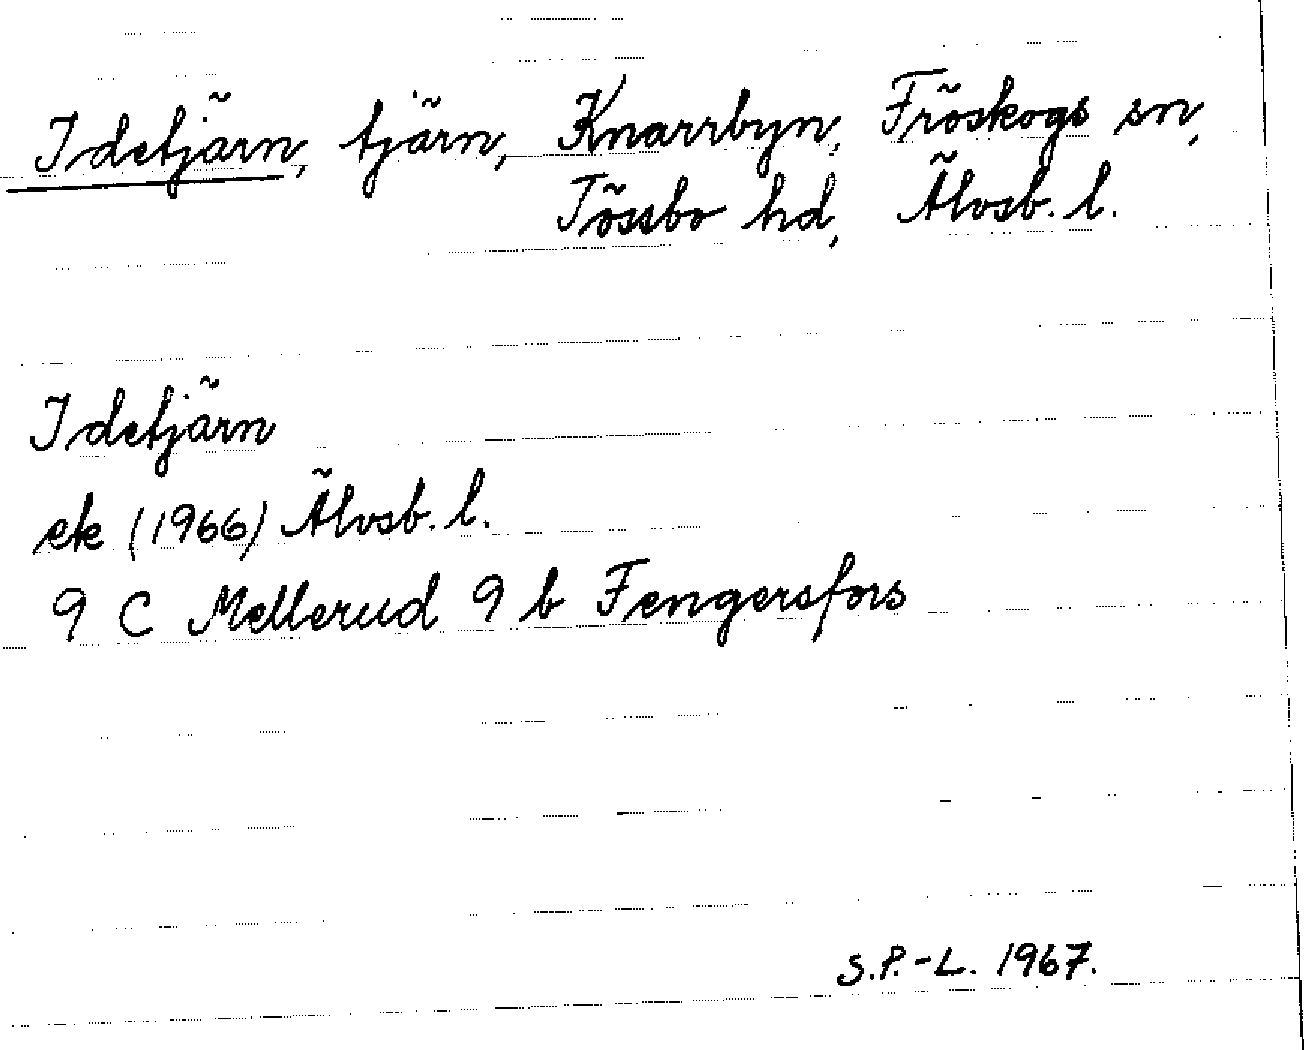 Idetjärn, tjärn, Knarrbyn, Fröskogs sn,
Tössbo hd, Älvsb. l.
Idetjärn
ek (1966) Älvsb. l.
9 C Mellerud 9 b Fengersfors
S.P.-L. 1967.